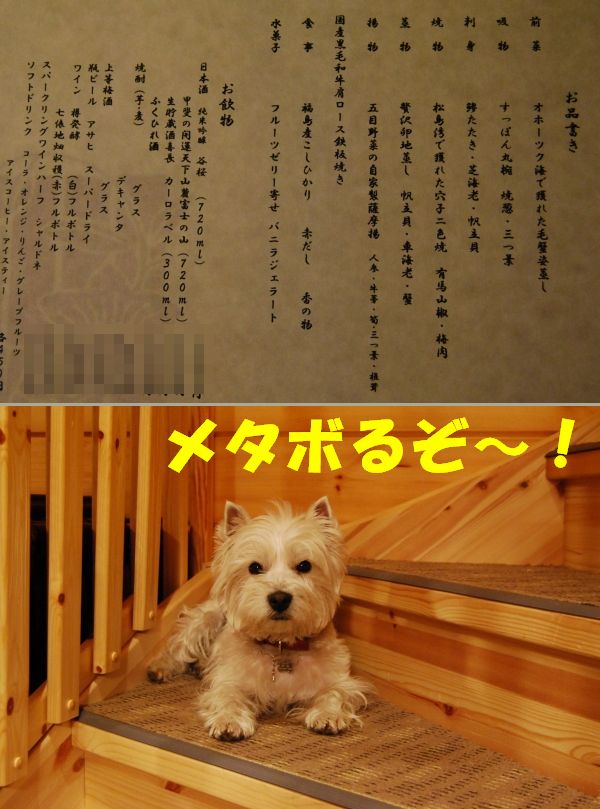 お品書き
前菜 オホーツク海で獲れた毛蟹姿蒸し
吸物 すっぽん丸椀 焼葱・三つ葉
刺身 鯵たたき・芝海老・帆立貝
焼物 松島湾で獲れた穴子二色焼 有馬山椒・梅肉
蒸物 贅沢卯地蒸し 帆立貝・車海老・蟹
揚物 五目野菜の自家製薩摩揚 人参・牛蒡・筍・三つ葉・椎茸
国産黒毛和牛肩ロース鉄板焼き
食事 福島産こしひかり 赤だし 香の物
水菓子 フルーツゼリー寄せ バニラジェラート
お飲物
日本酒 純米吟醸 谷桜 (720ml)
甲斐の開運天下山麓富士の山 (720ml)
生貯蔵酒喜長 カーロラベル (300ml)
ふくひれ酒
焼酎(芋・麦) グラス
デキャンタ
上等梅酒 グラス
瓶ビール アサヒ スーパードライ
ワイン 樽発酵 (白)フルボトル
七俵地畑収穫(赤)フルボトル
スパークリングワインハーフ シャルドネ
ソフトドリンク コーラ・オレンジ・りんご・グレープフルーツ
アイスコーヒー・アイスティー
各450円
メタボるぞ～！